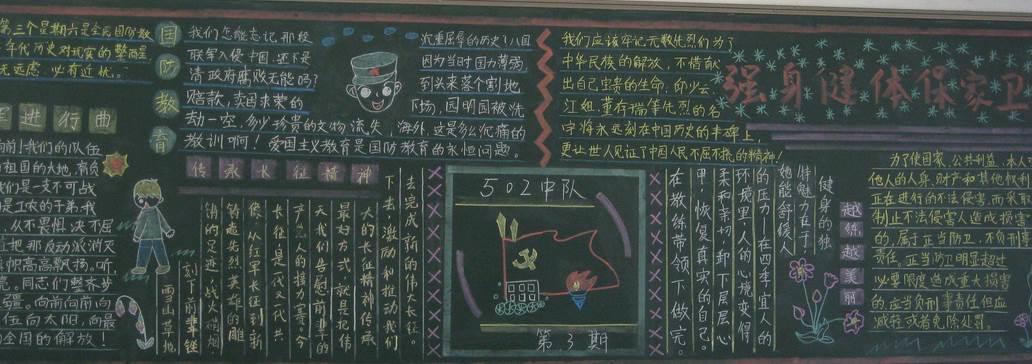 第三个星期六是全民国防教
年代历史对现实的警醒是
无远虑，必有近忧。
国防教育
我们怎能忘记，那段
联军入侵中国，还不是
清政府腐败无能吗？
赔款，卖国求荣的
劫一空，多少珍贵的文物流失海外，这是多么沉痛的
教训啊！爱国主义教育是国防教育的永恒问题。
沉重屈辱的历史？八国
因为当时国力薄弱，
到头来落个割地
下场，圆明园被洗
我们应该牢记无数先烈们为了
中华民族的解放，不惜献
出自己宝贵的生命，邱少云
江姐，董存瑞等先烈的名
字将永远刻在中国历史的丰碑上，
更让世人见证了中国人民不屈不挠的精神！
强身健体保家卫
军进行曲
向前！我们的队伍
祖国的大地，肩负
我们是一支不可战
是工农的子弟，我
从不畏惧，决不屈
把那反动派消灭
旗帜高高飘扬。听，
亮。同志们整齐步
疆。向前向前向
伍向太阳，向最
全国的解放！
传承长征精神
去完成新的伟大长征。
下去，激励和推动我们
大的长征精神传承
最好方式，就是把伟
天，我们告慰前辈的
产党人的接力赛。今
长征是一代又一代共
像，从红军长征到新
铸造先烈英雄的雕
销的足迹，战火硝烟，
刻下前辈铿
雪山草地
502中队
第3期
健身的独
特魅力在于，
她能舒缓人
的压力——在四季宜人的
环境里，人的心境变得
柔和亲切，卸下层层心
理，恢复真实的自己。
在教练带领下做完
越练越美丽
为了使国家、公共利益、本人
他人的人身、财产和其他权利
正在进行的不法侵害，而采取
制止不法侵害人造成损害
的，属于正当防卫，不负刑事
责任。正当防卫明显超过
必要限度造成重大损害
的，应当负刑事责任，但应
减轻或者免除处罚。